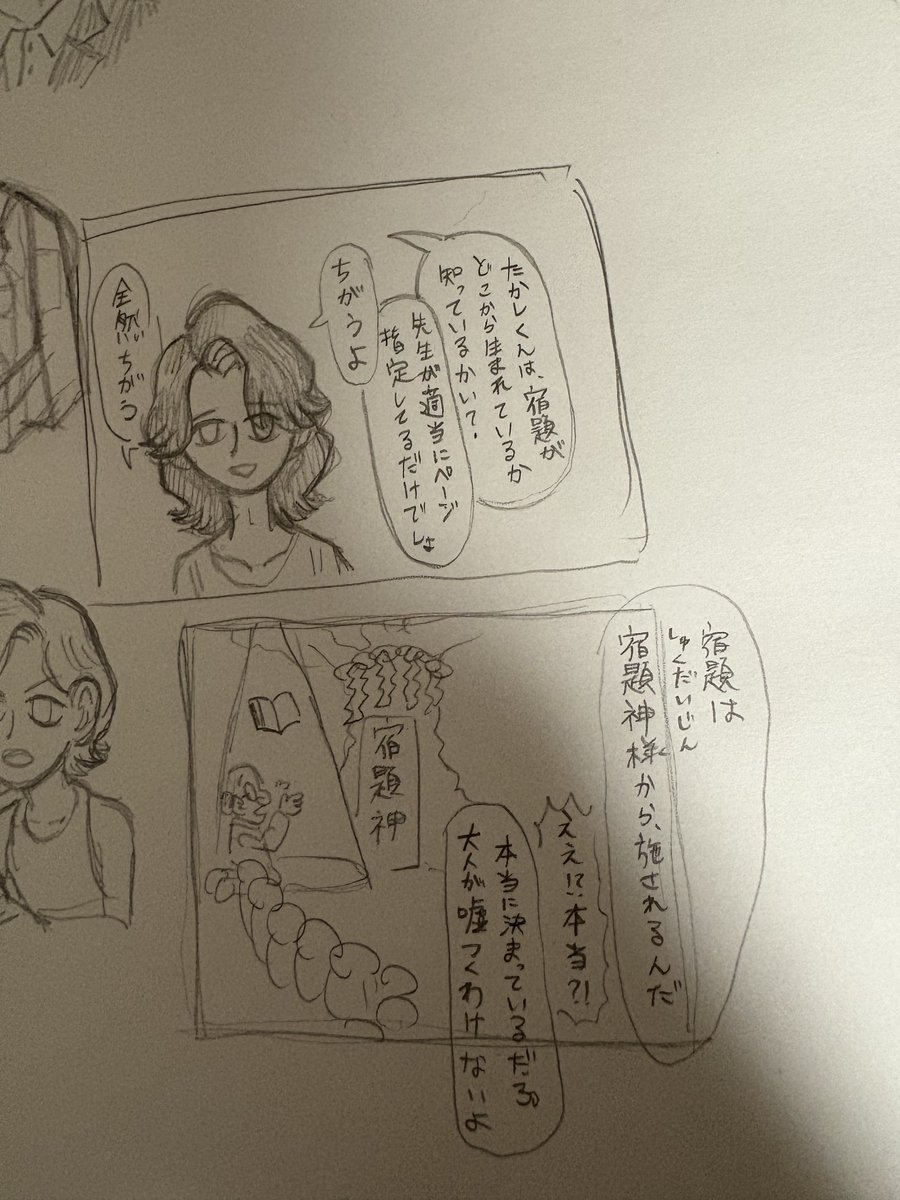 たかしくんは、宿題が
どこから生まれているか
知っているかい？
先生が適当にページ
指定してるだけでしょ
ちがうよ
全然ちがう
宿題は
しゅくだいじん
宿題神様から、施されるんだ
ええ!?本当?!
本当に決まっているだろ
大人が嘘つくわけないよ
宿題神